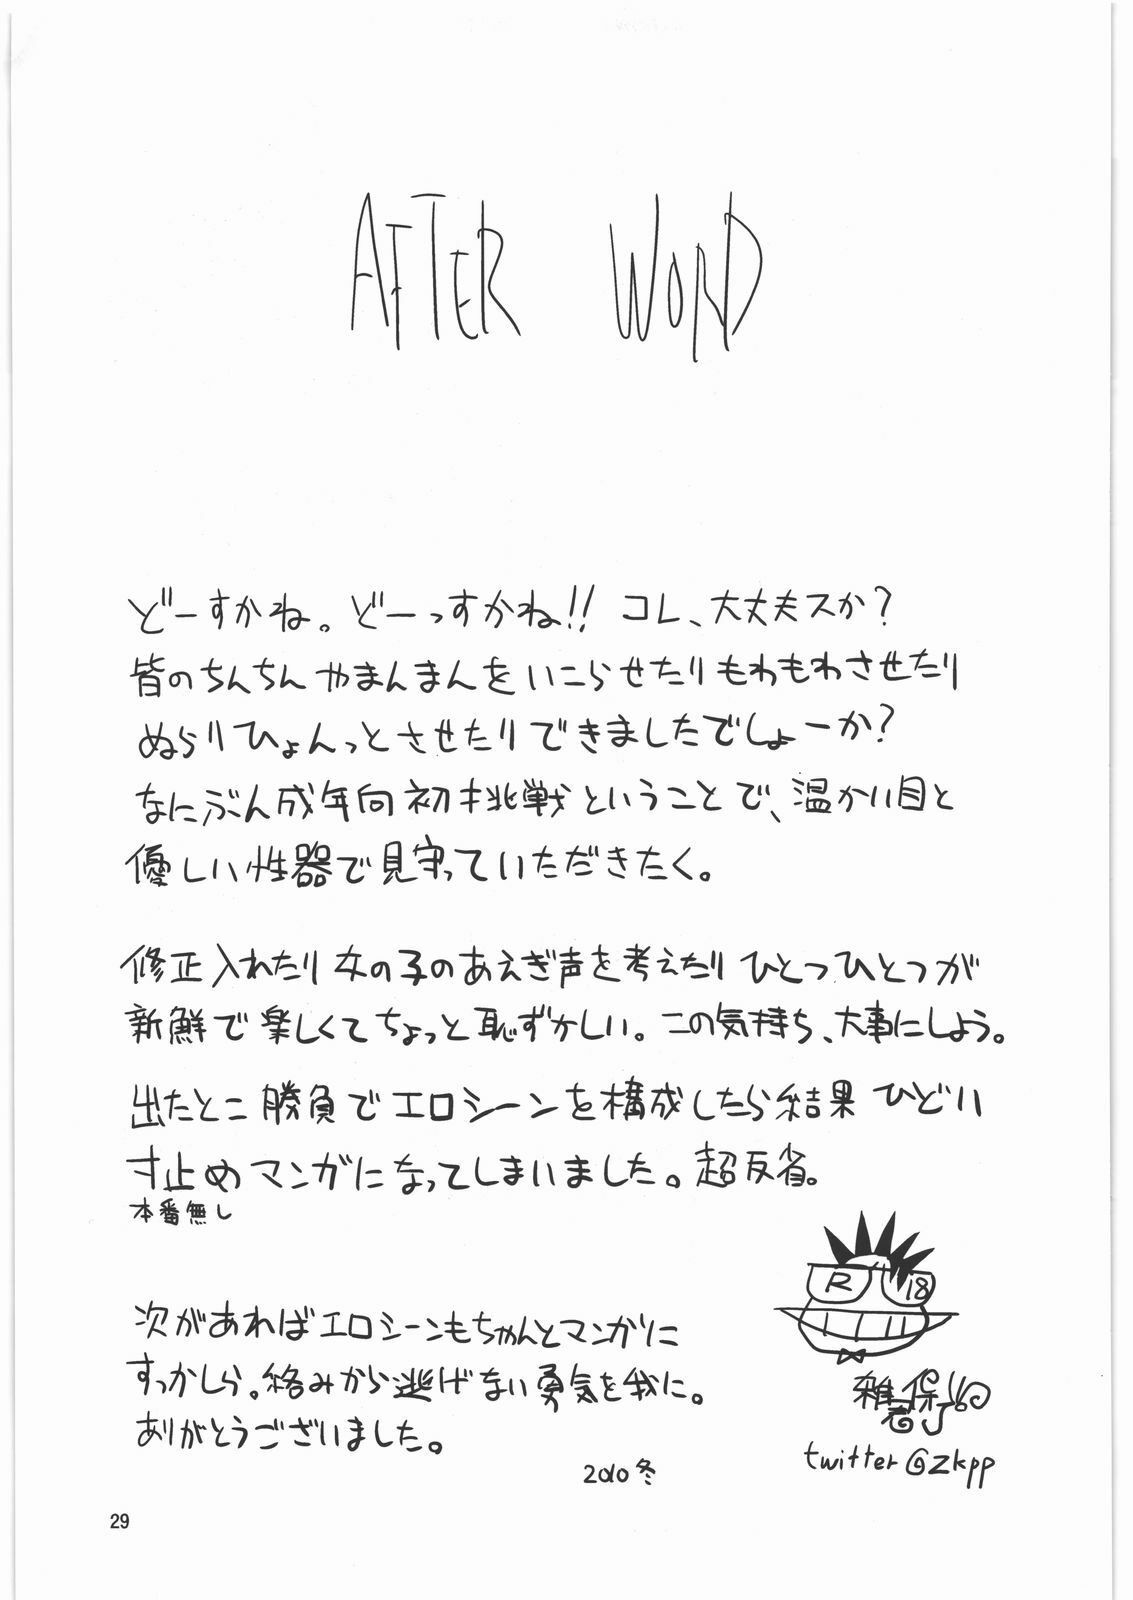 AFTER WORD
どーすかね。どーっすかね!! コレ、大丈夫スか?
皆のちんちんやまんまんをいこらせたりもわもわさせたり
ぬらりひょんっとさせたりできましたでしょーか?
なにぶん成年向初挑戦ということで、温かい目と
優しい性器で見守っていただきたく。
修正入れたり女の子のあえぎ声を考えたりひとつひとつが
新鮮で楽しくてちょっと恥ずかしい。この気持ち、大事にしよう。
出たとこ勝負でエロシーンを構成したら結果ひどい
寸止めマンガになってしまいました。超反省。
本番無し
次があればエロシーンもちゃんとマンガに
すっかしら。絡みから逃げない勇気を我に。
ありがとうございました。
2010冬
R 18
雑君保
twitter@zkpp
29